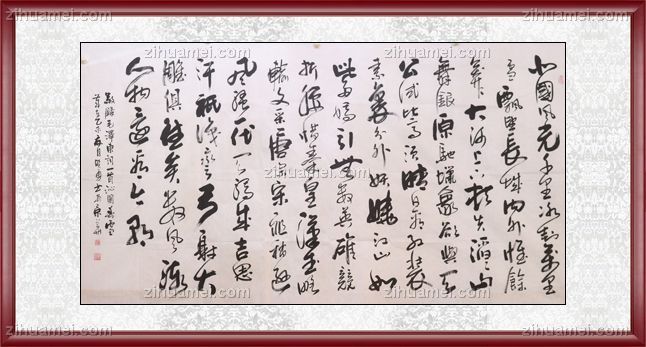 zihuamei.com zihuamei.com zihuamei.com
北國風光千里冰封萬里
雪飄望長城內外惟餘
莽莽大河上下頓失滔滔山
舞銀蛇原馳蠟象欲與天
公試比高須晴日看紅裝
素裹分外妖嬈江山如
此多嬌引無數英雄競
折腰惜秦皇漢武略
輸文采唐宗宋祖稍遜
風騷一代天驕成吉思
汗祇識彎弓射大
雕俱往矣數風流
人物還看今朝
敬錄毛澤東詞一首沁園春雪
zihuamei.com zihuamei.com zihuamei.com
zihuamei.com zihuamei.com zihuamei.com